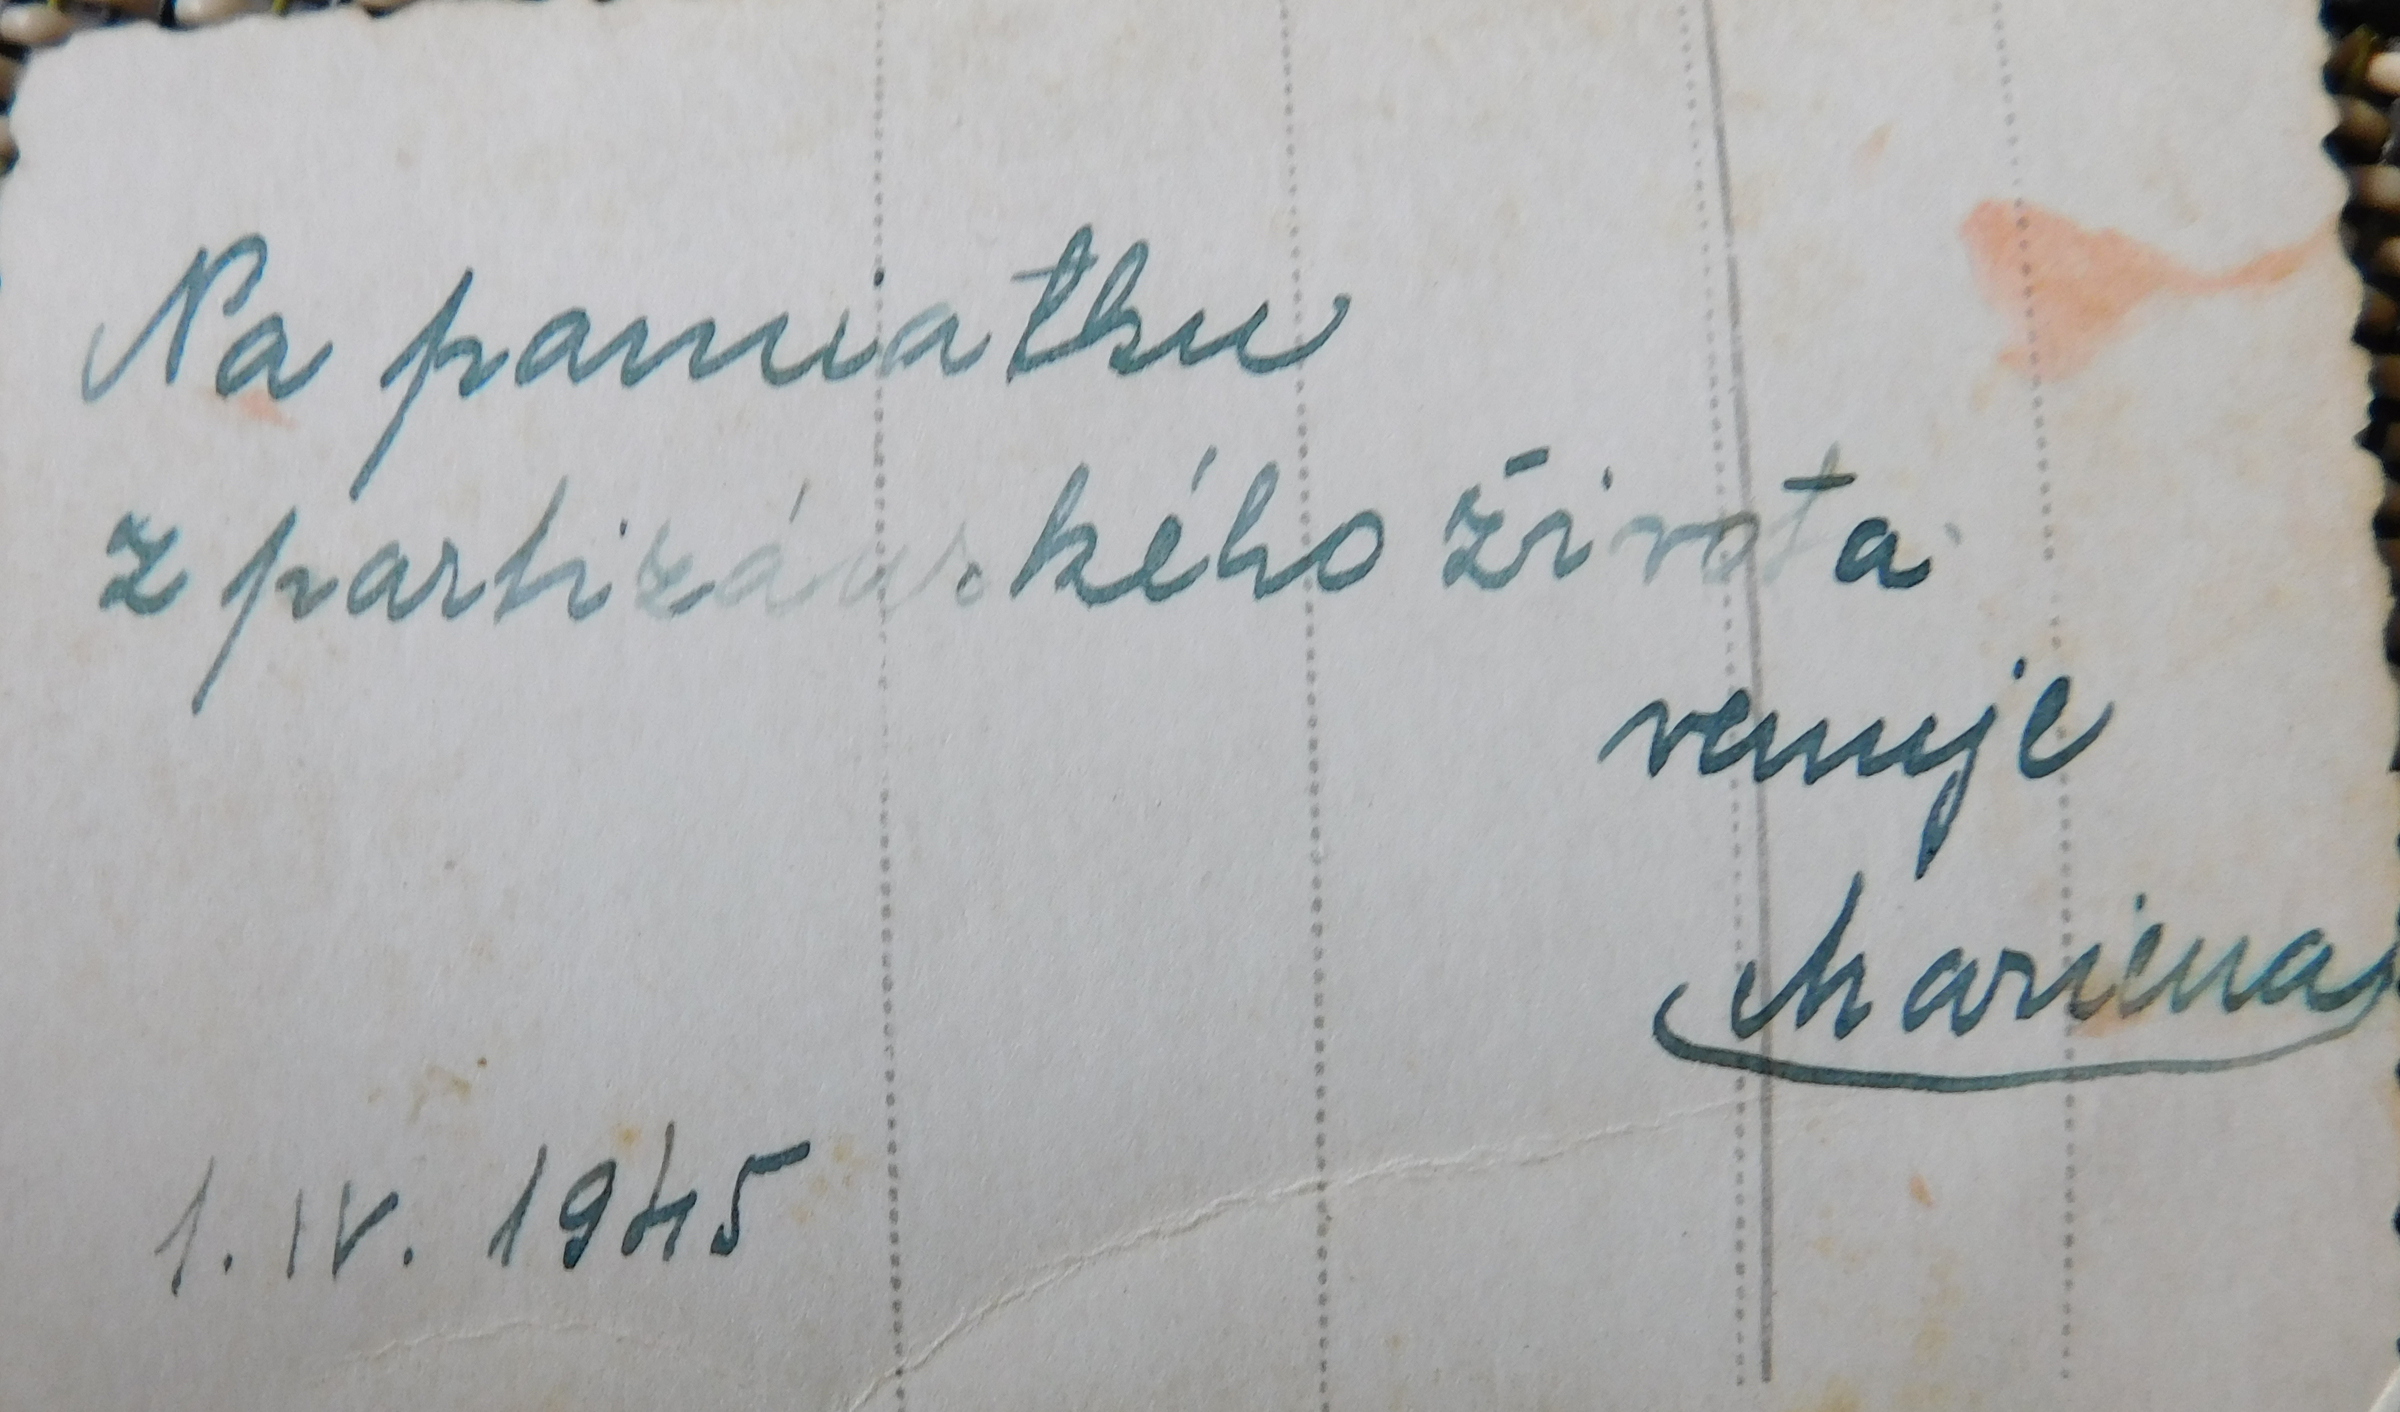 Na pamiatku
z partizánského života
venuje
Mariena
1. IV. 1945